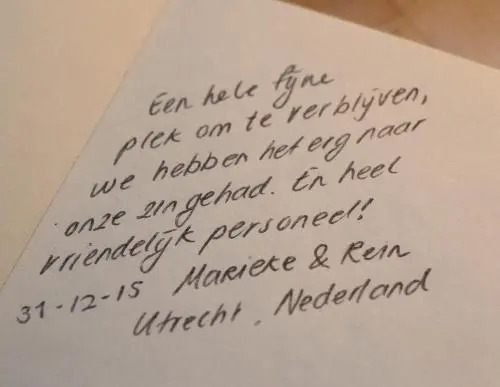 Een hele fijne
plek om te verblijven,
we hebben het erg naar
onze zin gehad. En heel
vriendelijk personeel!
31-12-15 Marieke & Rein
Utrecht, Nederland